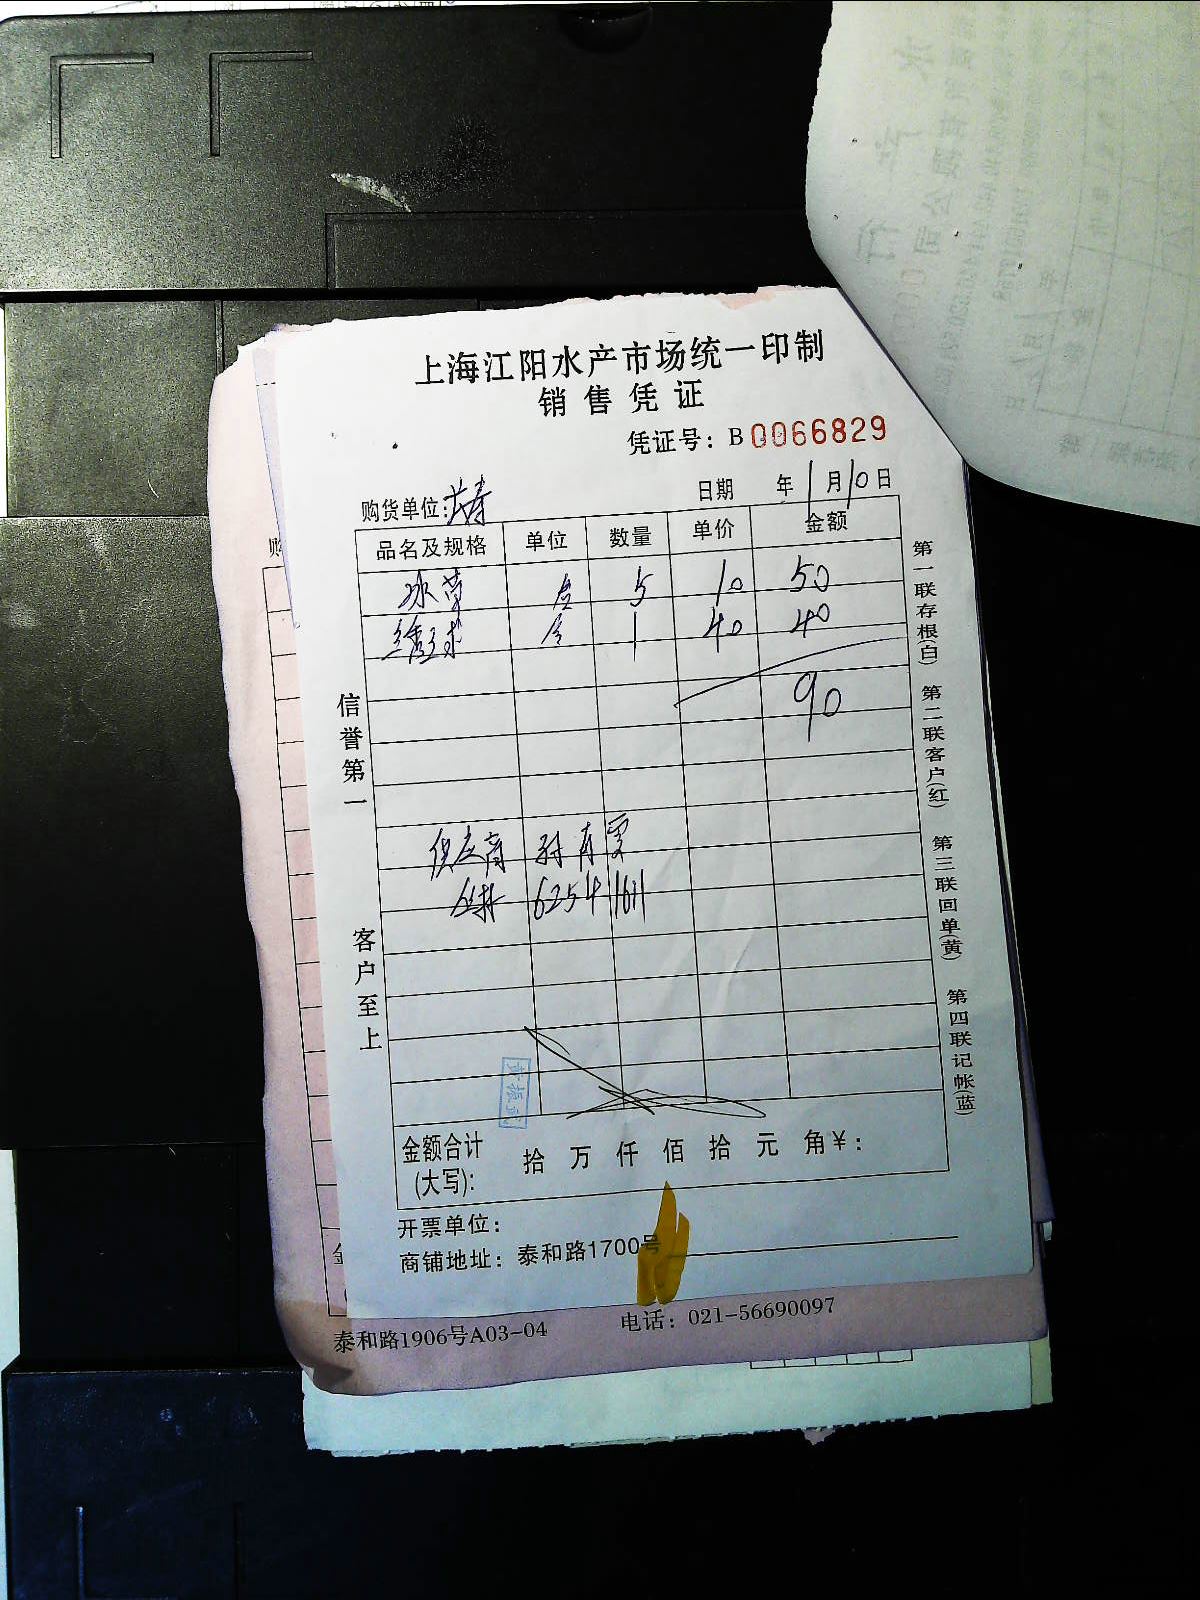 上海江阳水产市场统一印制
销售凭证
凭证号：B 0066829
购货单位：长寿
日期 年 1月10日
品名及规格 单位 数量 单价 金额
冰草 盒 5 10 50
绣球 1 40 40
90
供应商
62541611
信誉第一
客户至上
第一联存根(白) 第二联客户(红) 第三联回单(黄) 第四联记帐(蓝)
金额合计(大写)： 拾 万 仟 佰 拾 元 角 ¥：
开票单位：
商铺地址：泰和路1700号
泰和路1906号A03-04 电话：021-56690097